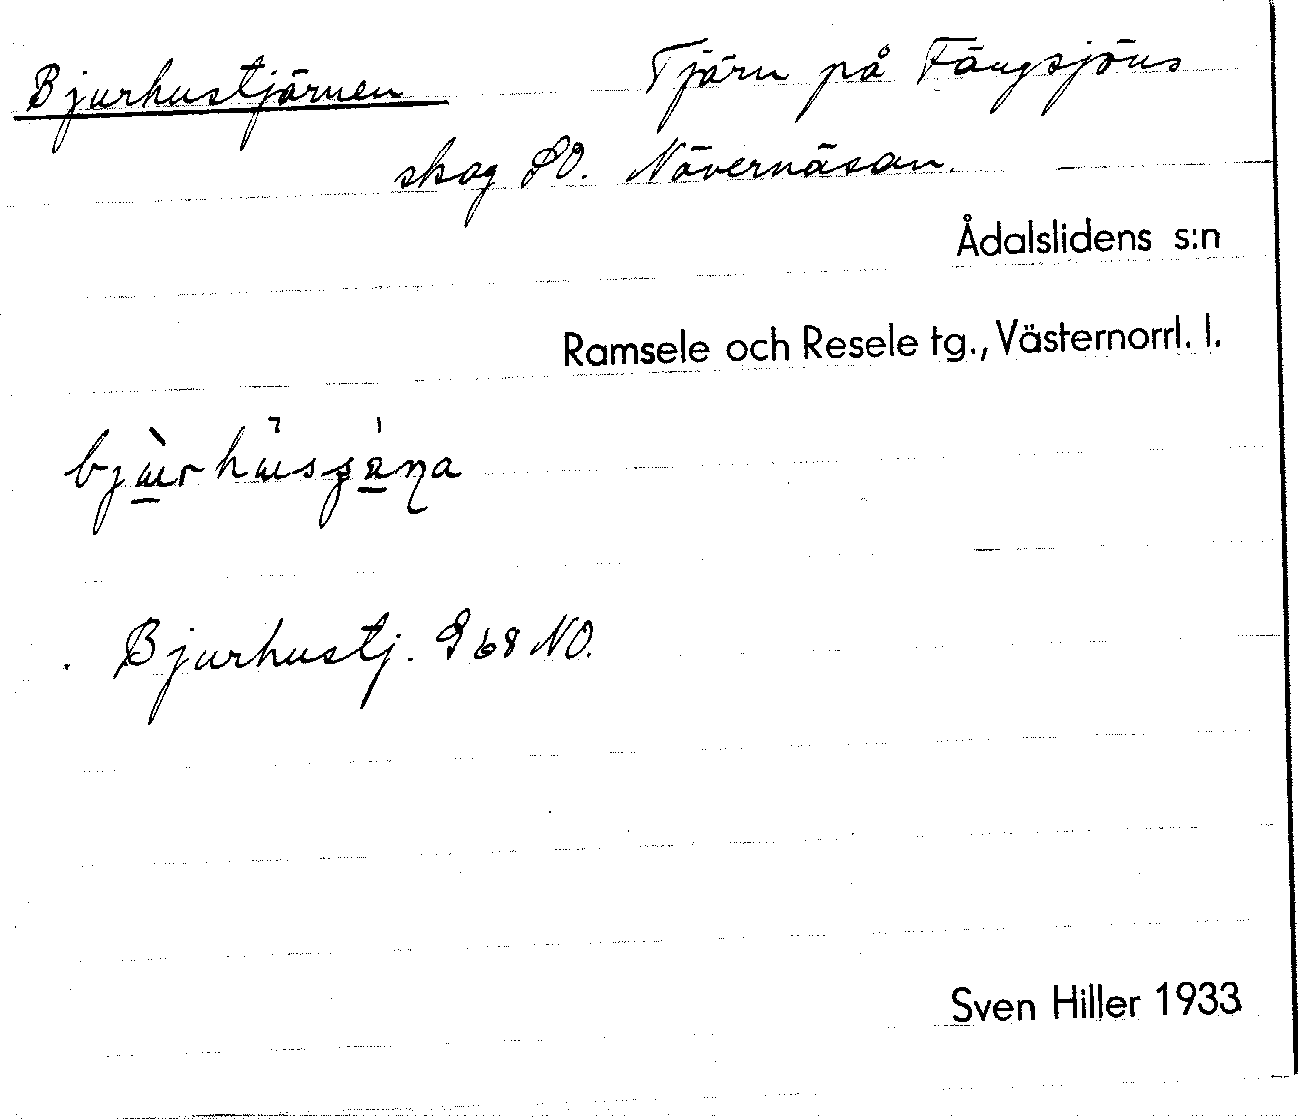 Bjurhustjärnen Tjärn på Fängsjöns
skog SO. Nävernäsan.
Ådalslidens s:n
Ramsele och Resele tg., Västernorrl. l.
Bjurhustj. G 68 NO.
Sven Hiller 1933